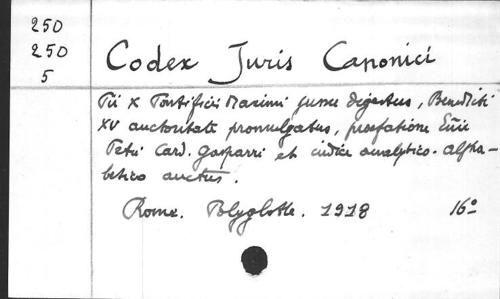 250
250
5
Codex Juris Canonici
Pii X Pontificis Maximi jussu digestus, Benedicti
XV auctoritate promulgatus, praefatione Emi
Petri Card. Gasparri et indice analytico-alpha-
betico auctus.
Romae. Polyglotte. 1918 16°